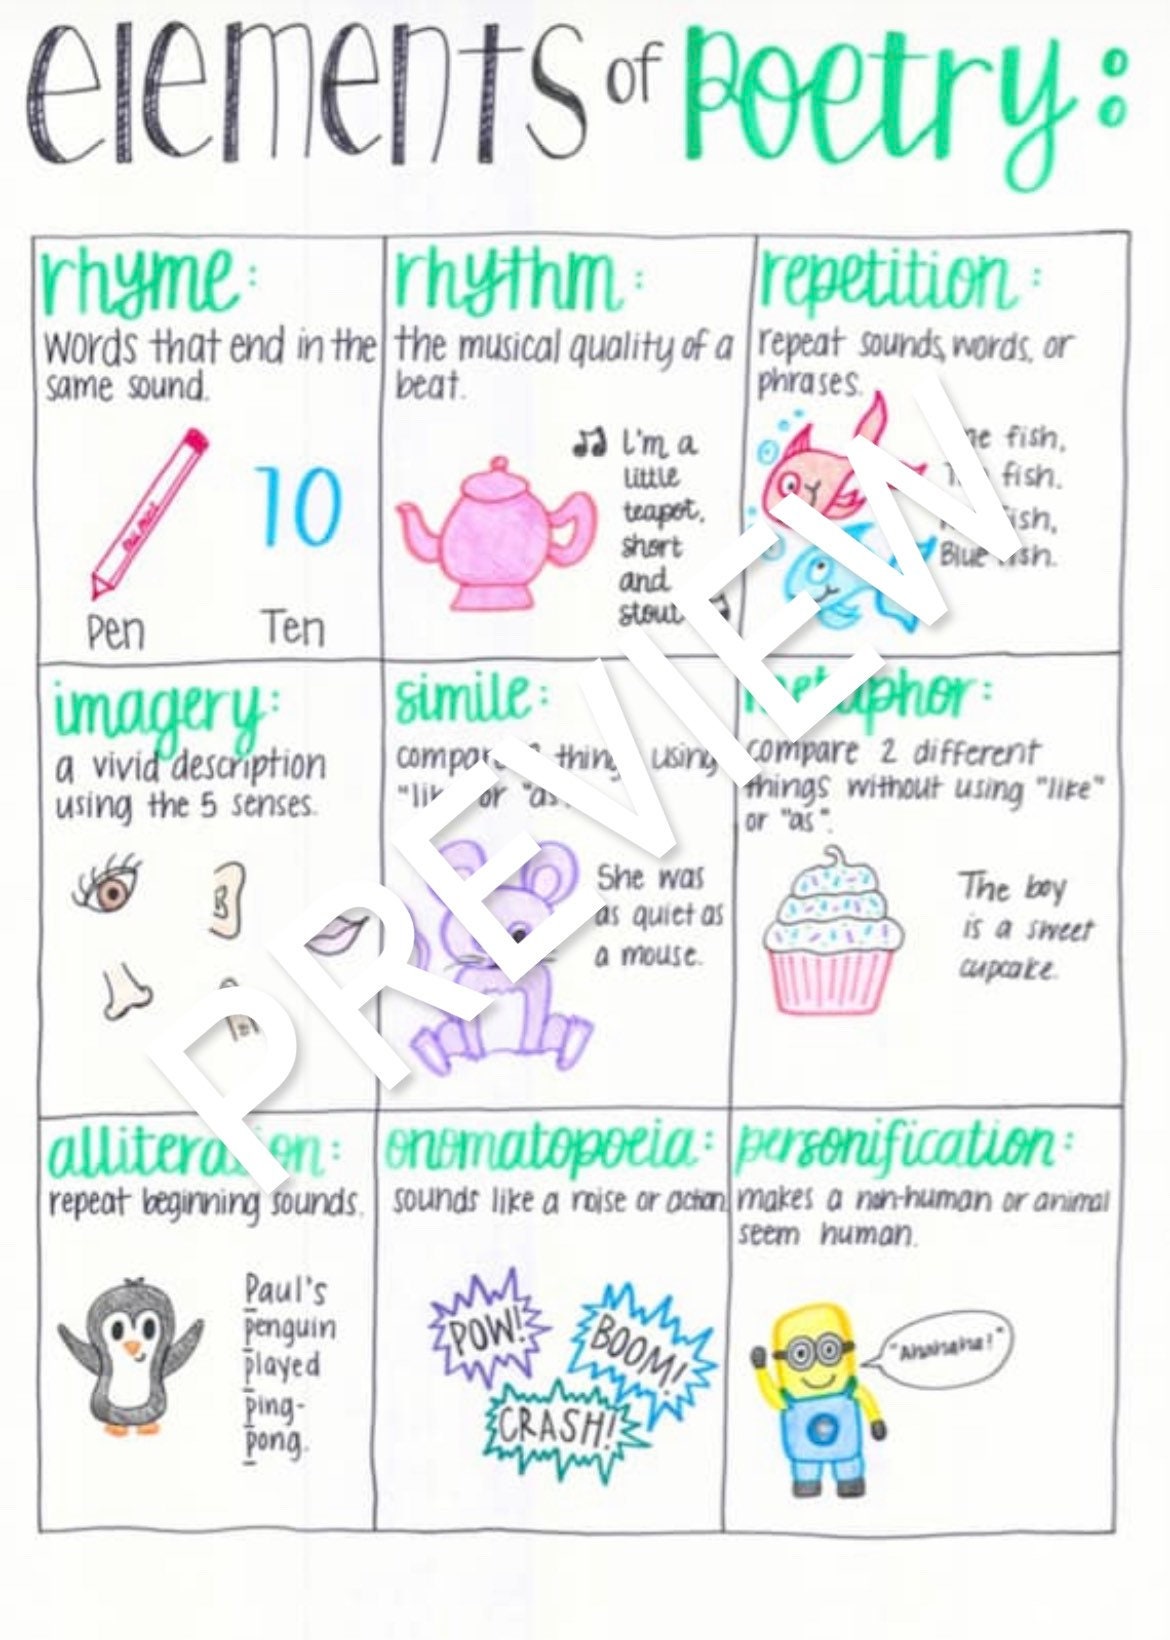 elements of Poetry:
rhyme:
words that end in the
same sound.
Pen
10
Ten
rhythm:
the musical quality of a
beat.
I'm a
little
teapot,
short
and
stout
repetition:
repeat sounds, words, or
phrases.
fish,
fish.
Blue fish.
imagery:
a vivid description
using the 5 senses.
simile:
compare 2 things using
"like" or "as".
She was
as quiet as
a mouse.
metaphor:
compare 2 different
things without using "like"
or "as".
The boy
is a sweet
cupcake.
alliteration:
repeat beginning sounds.
Paul's
penguin
played
ping-
pong.
onomatopoeia:
sounds like a noise or action.
POW!
BOOM!
CRASH!
personification:
makes a non-human or animal
seem human.
"Ahahaha!"
PREVIEW